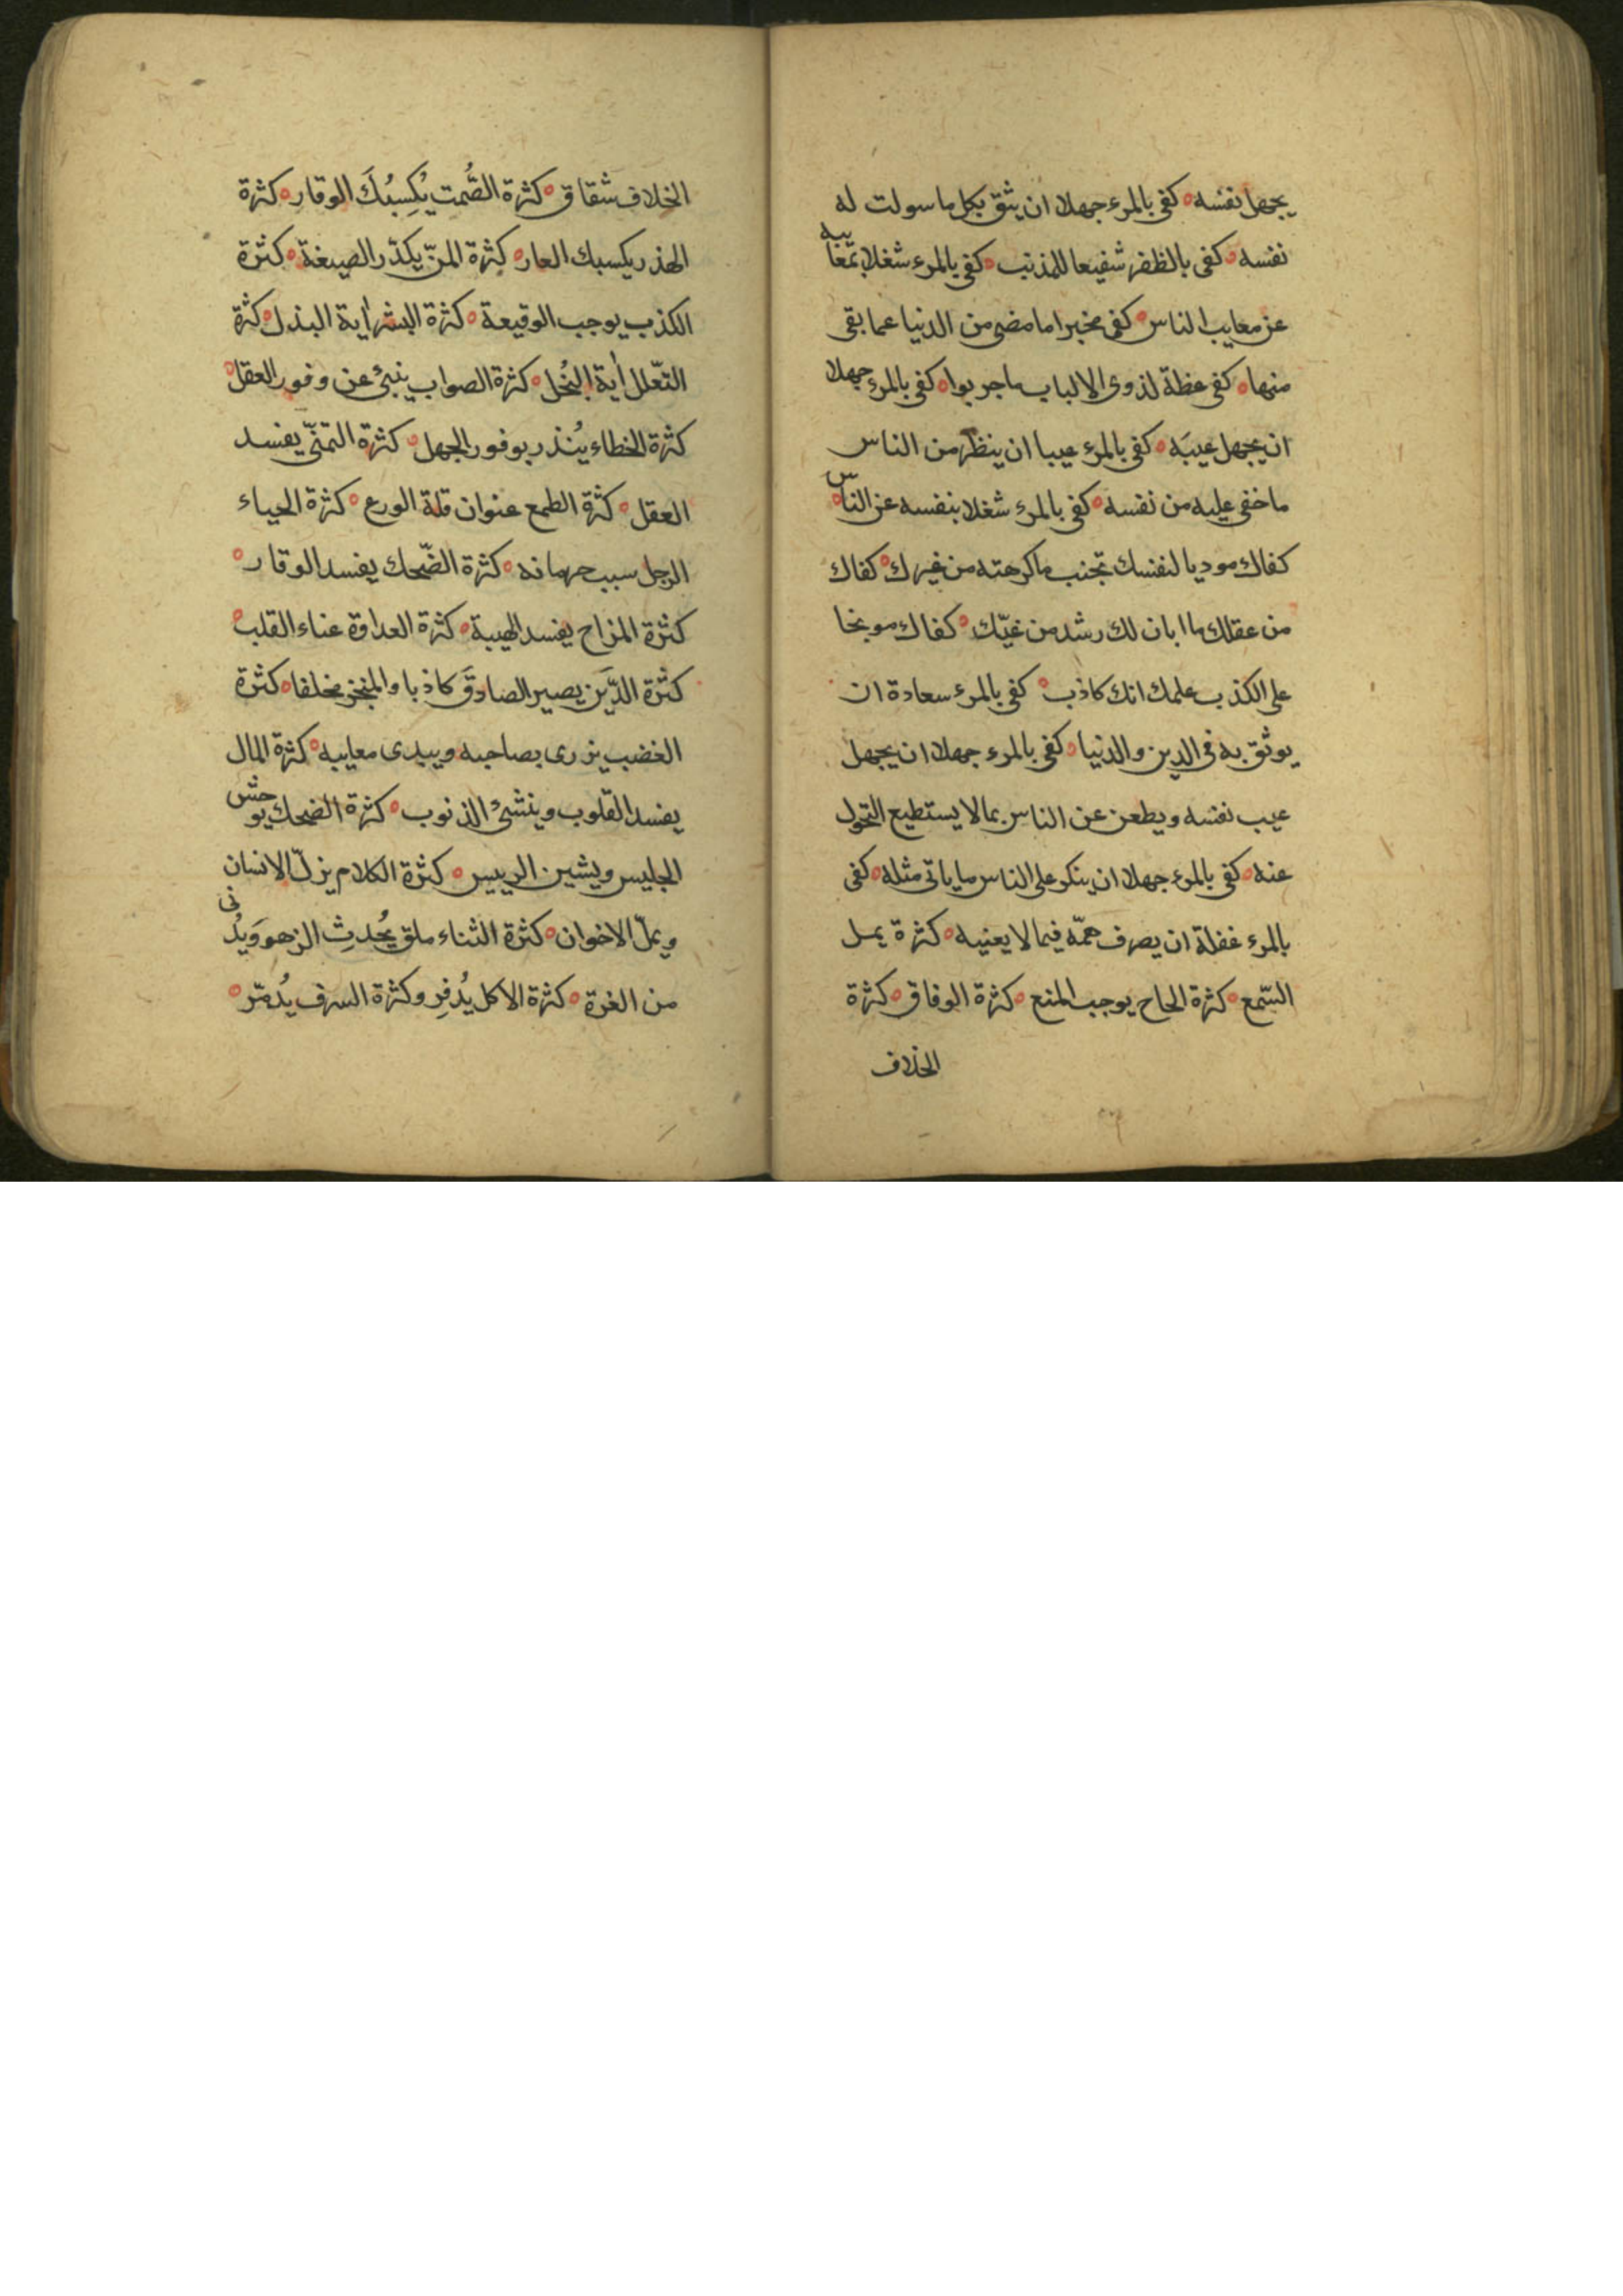 يجهل نفسه ه كفى بالمرء جهلا ان يثق بكل ما سولت له
نفسه ه كفى بالظفر شفيعا للمذنب ه كفى بالمرء شغلا بمعايبه
عن معايب الناس ه كفى مخبرا ما مضى من الدنيا عما بقى
منها ه كفى عظة لذوى الالباب ما جربوا ه كفى بالمرء جهلا
ان يجهل عيبَه ه كفى بالمرء عيبا ان ينظر من الناس
ما خفى عليه من نفسه ه كفى بالمرء شغلا بنفسه عن الناس ه
كفاك موديا لنفسك تجنب ما كرهته من غيرك ه كفاك
من عقلك ما ابان لك رشد من غيّك ه كفاك موبخا
على الكذب علمك انك كاذب ه كفى بالمرء سعادة ان
يوثق به فى الدين والدنيا ه كفى بالمرء جهلا ان يجهل
عيب نفسه ويطعن عن الناس بما لا يستطيع التحول
عنه ه كفى بالمرء جهلا ان ينكر على الناس ما ياتى مثله ه كفى
بالمرء غفلة ان يصرف همّه فيما لا يعنيه ه كثرة يمل
السّمع ه كثرة الحاح يوجب المنع ه كثرة الوفاق ه كثرة
الخلاف
الخلاف شقاق ه كثرة الصُّمت يُكسِبُكَ الوقارِ ه كثرة
الهذر يكسبك العار ه كثرة المنّ يكدّر الصيغة ه كثرة
الكذب يوجب الوقيعة ه كثرة البشر اية البذل ه كثرة
التعّلل اية البُخل ه كثرة الصواب ينبئ عن وفور العقل ه
كثرة الخطاء يُنذر بوفور الجهل ه كثرة التمنّي يفسد
العقل ه كثرة الطمع عنوان قلة الورع ه كثرة الحياء
الرجل سبب حرمانه ه كثرة الضّحك يفسد الوقار ه
كثرة المزاح يفسد الهيبة ه كثرة العداوة عناء القلب ه
كثرة الدَّين يصير الصادقَ كاذبا والمنجز مخلفا ه كثرة
الغضب يزرى بصاحبه ويبدى معايبه ه كثرة المال
يفسد القلوب وينشئ الذنوب ه كثرة الضحك يوحش
الجليس ويشين الرييس ه كثرة الكلام يزلّ الانسان
ويملّ الاخوان ه كثرة الثناء ملق يُحدِث الزهو وَيدُنى
من الغرة ه كثرة الاكل يُدفِر وكثرة السرف يُدمّر ه